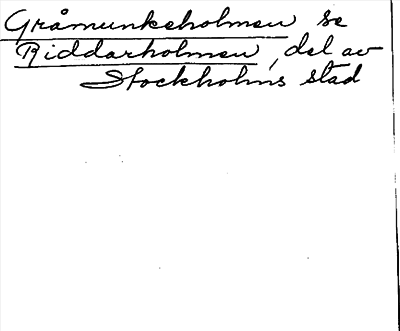 Gråmunkeholmen se
Riddarholmen, del av
Stockholms stad